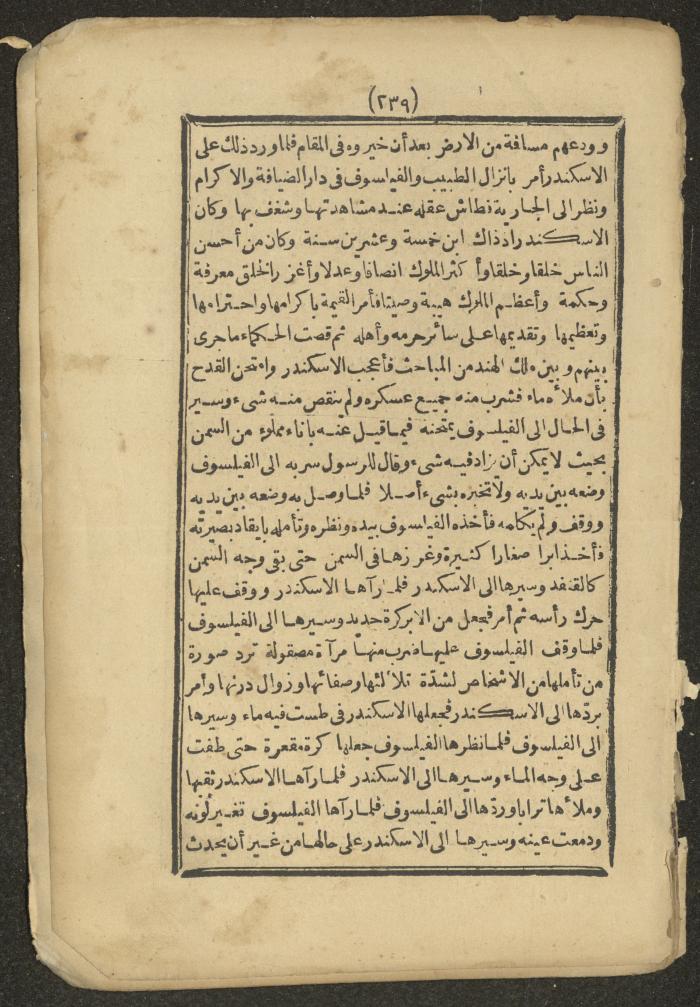 (٢٣٩)
وودعهم مسافة من الارض بعد أن خيروه فى المقام فلما ورد ذلك على
الاسكندر أمر بانزال الطبيب والفيلسوف فى دار الضيافة والاكرام
ونظر الى الجارية فطاش عقله عند مشاهدتها وشغف بها وكان
الاسكندر اذ ذاك ابن خمسة وعشرين سنة وكان من أحسن
الناس خلقا وخلقا وأكثر الملوك انصافا وعدلا وأغزر الخلق معرفة
وحكمة وأعظم الملوك هيبة وصيتا فأمر القيمة باكرامها واحترامها
وتعظيمها وتقديمها على سائر حرمه وأهله ثم قصت الحكماء ما جرى
بينهم وبين ملك الهند من المباحث فأعجب الاسكندر وامتحن القدح
بأن ملأه ماء فشرب منه جميع عسكره ولم ينقص منه شىء وسير
فى الحال الى الفيلسوف يمتحنه فيما قيل عنه باناء مملوء من السمن
بحيث لا يمكن أن يزاد فيه شىء وقال للرسول سر به الى الفيلسوف
وضعه بين يديه ولا تخبره بشىء أصلا فلما وصل به وضعه بين يديه
ووقف ولم يكلمه فأخذه الفيلسوف بيده ونظره وتأمله بايقاد بصيرته
فأخذ ابرا صغارا كثيرة وغرزها فى السمن حتى بقى وجه السمن
كالقنفد وسيرها الى الاسكندر فلما رآها الاسكندر ووقف عليها
حرك رأسه ثم أمر فجعل من الابر كرة حديد وسيرها الى الفيلسوف
فلما وقف الفيلسوف عليها ضرب منها مرآة مصقولة ترد صورة
من تأملها من الاشخاص لشدة تلألئها وصفائها وزوال درنها وأمر
بردها الى الاسكندر فجعلها الاسكندر فى طست فيه ماء وسيرها
الى الفيلسوف فلما نظرها الفيلسوف جعلها كرة مقعرة حتى طفت
على وجه الماء وسيرها الى الاسكندر فلما رآها الاسكندر ثقبها
وملأها ترابا وردها الى الفيلسوف فلما رآها الفيلسوف تغير لونه
ودمعت عينه وسيرها الى الاسكندر على حالها من غير أن يحدث